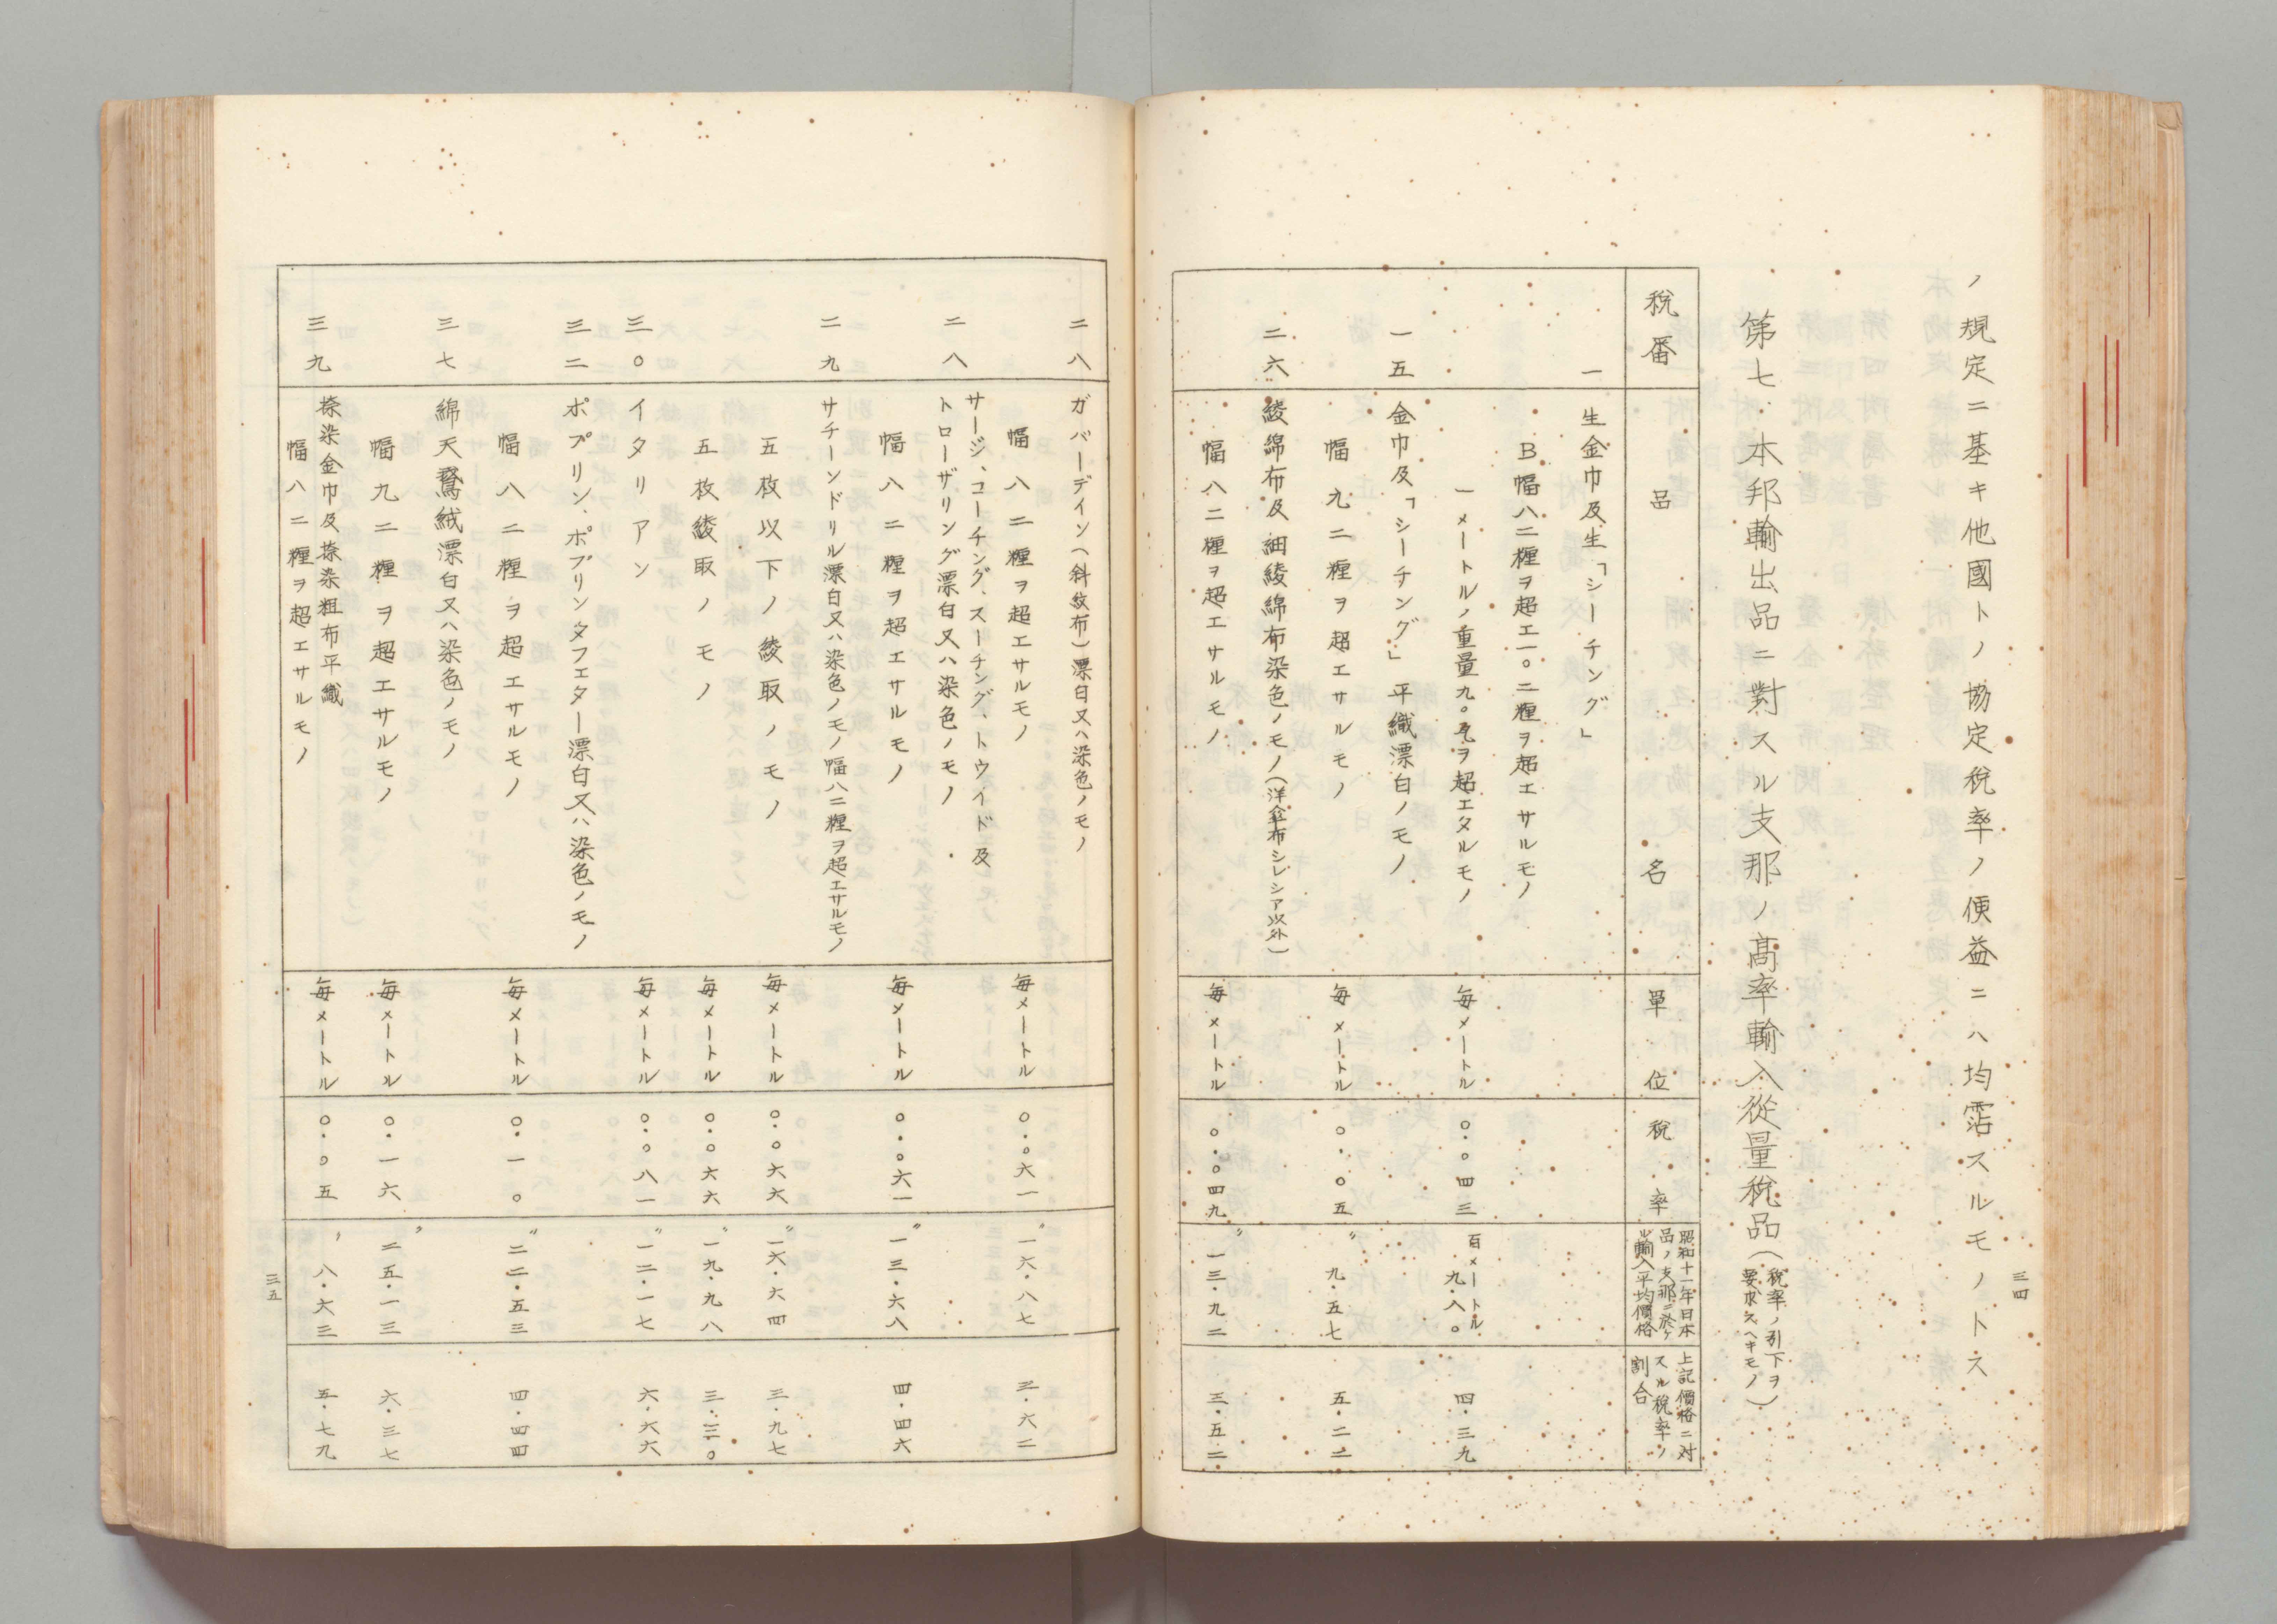 ノ規定ニ基キ他國トノ協定税率ノ便益ニハ均霑スルモノトス
三四
第七、本邦輸出品ニ對スル支那ノ高率輸入從量税品(税率ノ引下ヲ要求スヘキモノ)
税番
品名
單位
税率
昭和十一年日本
品ノ支那ニ於ケ
ル輸入平均價格
上記價格ニ対
スル税率ノ
割合
一
生金巾及生「シーチング」
B幅八二糎ヲ超エ一〇二糎ヲ超エサルモノ
一メートルノ重量九〇瓦ヲ超エタルモノ
毎メートル
〇・〇四三
百メートル
九・八〇
四・三九
一五
金巾及「シーチング」平織漂白ノモノ
幅九二糎ヲ超エサルモノ
毎メートル
〇・〇五
〃 九・五七
五・二二
二六
綾綿布及細綾綿布染色ノモノ(洋傘布シレシア以外)
幅八二糎ヲ超エサルモノ
毎メートル
〇・〇四九
〃 一三・九二
三・五二
二八
ガバーデイン(斜紋布)漂白又ハ染色ノモノ
幅八二糎ヲ超エサルモノ
毎メートル
〇・〇六一
〃 一六・八七
三・六二
二八
サージ、コーチング、スーチング、トウイド及
トローザリング漂白又ハ染色ノモノ
幅八二糎ヲ超エサルモノ
毎メートル
〇・〇六一
〃 一三・六八
四・四六
二九
サチーンドリル漂白又ハ染色ノモノ幅八二糎ヲ超エサルモノ
五枚以下ノ綾取ノモノ
毎メートル
〇・〇六六
〃 一六・六四
三・九七
五枚綾取ノモノ
毎メートル
〇・〇六六
〃 一九・九八
三・三〇
三〇
イタリアン
毎メートル
〇・〇八一
〃 一二・一七
六・六六
三二
ポプリン、ポプリンタフエター漂白又ハ染色ノモノ
幅八二糎ヲ超エサルモノ
毎メートル
〇・一〇
〃 二二・五三
四・四四
三七
綿天鵞絨漂白又ハ染色ノモノ
幅九二糎ヲ超エサルモノ
毎メートル
〇・一六
〃 二五・一三
六・三七
三九
捺染金巾及捺染粗布平織
幅八二糎ヲ超エサルモノ
毎メートル
〇・〇五
〃 八・六三
五・七九
三五